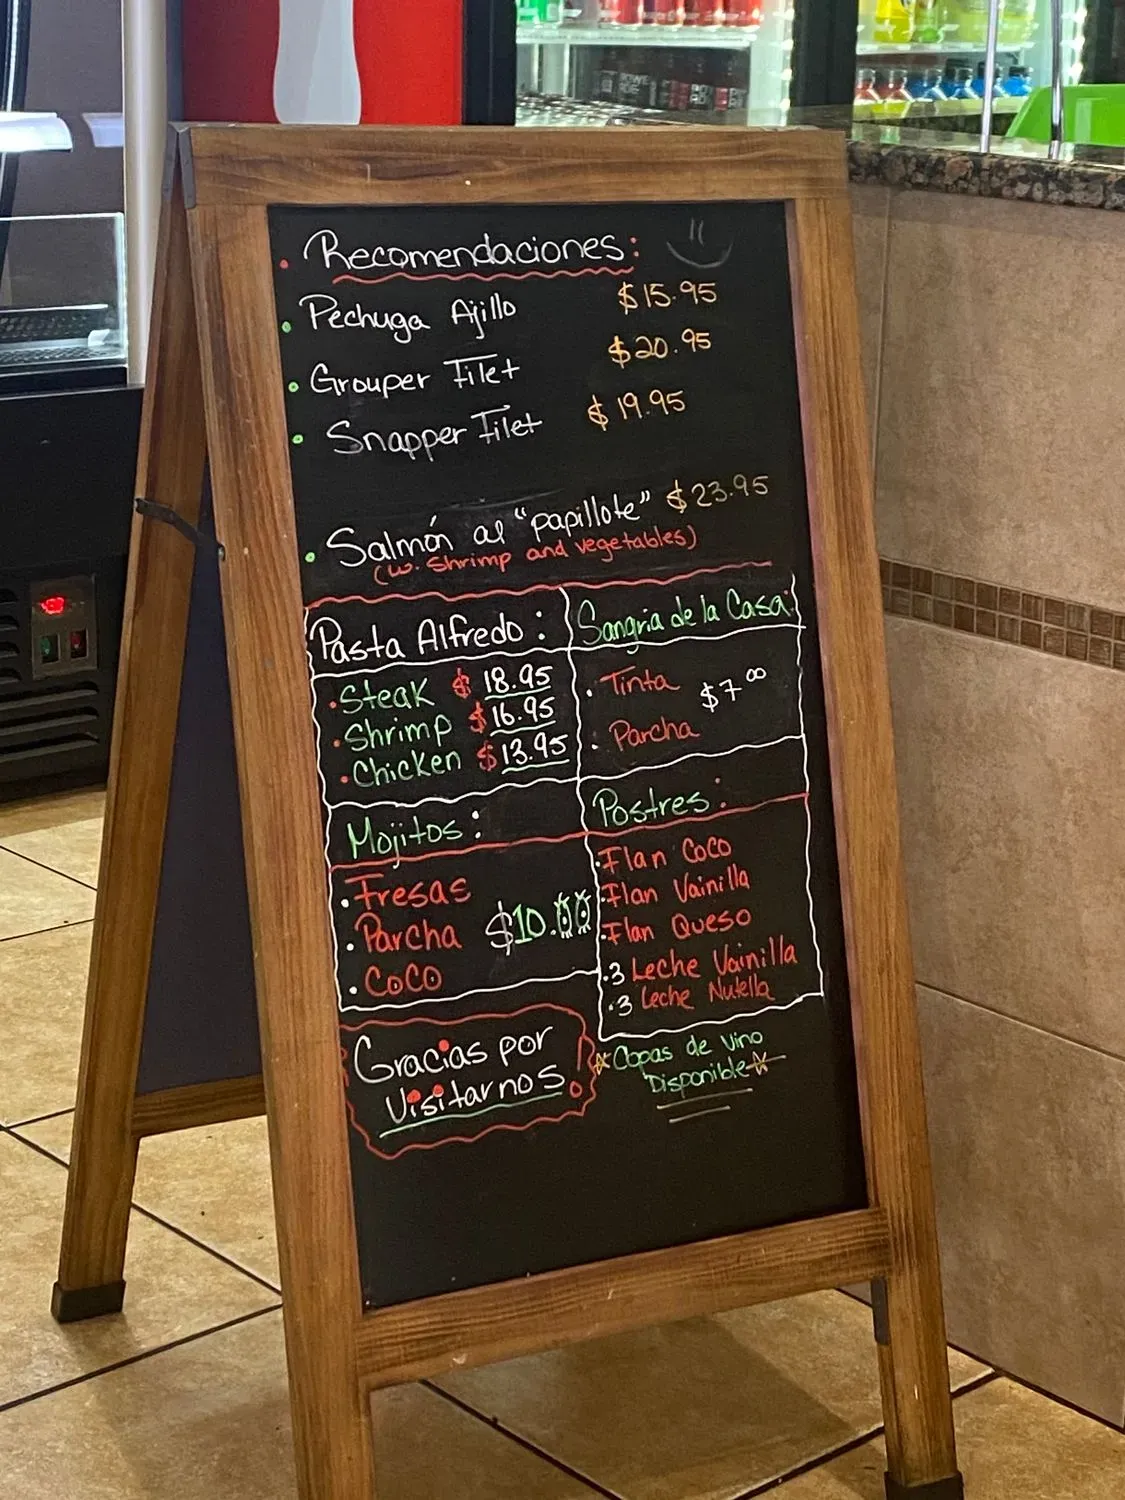 • Recomendaciones:
• Pechuga Ajillo $15.95
• Grouper Filet $20.95
• Snapper Filet $19.95
• Salmón al "papillote" $23.95
(w. Shrimp and vegetables)
Pasta Alfredo:
• Steak $18.95
• Shrimp $16.95
• Chicken $13.95
Sangria de la Casa:
• Tinta
$7.00
• Parcha
Mojitos:
• Fresas
• Parcha $10.00
• Coco
Postres:
• Flan Coco
• Flan Vainilla
• Flan Queso
• 3 Leche Vainilla
• 3 Leche Nutella
Gracias por
Visitarnos!
Copas de vino
Disponible